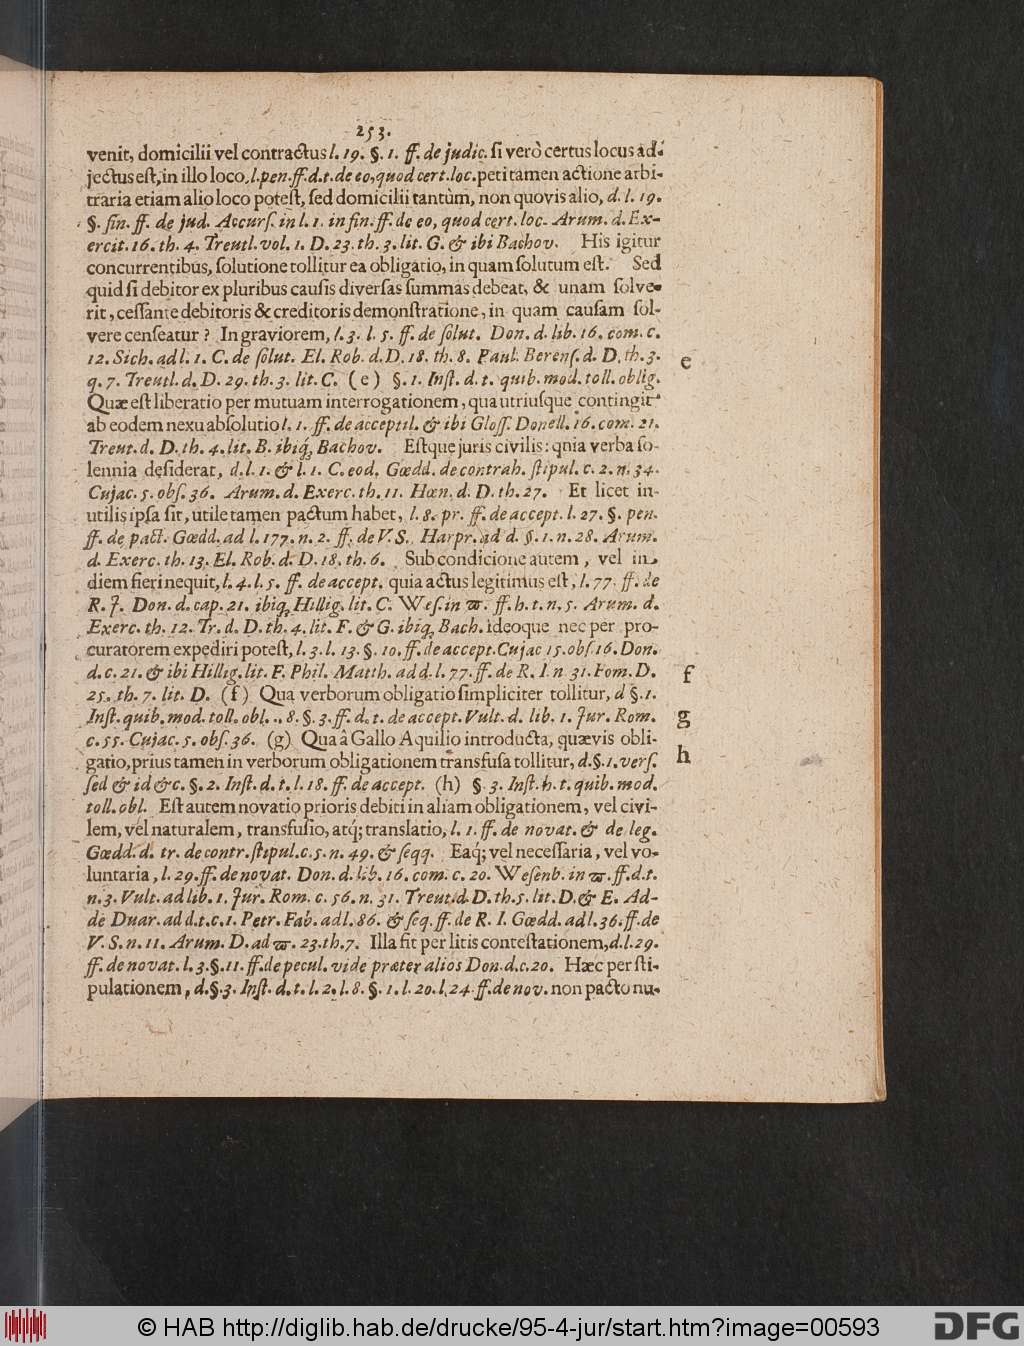 253.
venit, domicilii vel contractus l. 19. §. 1. ff. de judic. si verò certus locus ad-
jectus est, in illo loco, l. pen. ff. d. t. de eo, quod cert. loc. peti tamen actione arbi-
traria etiam alio loco potest, sed domicilii tantùm, non quovis alio, d. l. 19.
§. fin. ff. de jud. Accurs. in l. 1. in fin. ff. de eo, quod cert. loc. Arum. d. Ex-
ercit. 16. th. 4. Treutl. vol. 1. D. 23. th. 3. lit. G. & ibi Bachov. His igitur
concurrentibus, solutione tollitur ea obligatio, in quam solutum est. Sed
quid si debitor ex pluribus causis diversas summas debeat, & unam solve-
rit, cessante debitoris & creditoris demonstratione, in quam causam sol-
vere censeatur? In graviorem, l. 3. l. 5. ff. de solut. Don. d. lib. 16. com. c.
12. Sich. ad l. 1. C. de solut. El. Rob. d. D. 18. th. 8. Paul. Berens. d. D. th. 3.
e
q. 7. Treutl. d. D. 29. th. 3. lit. C. (e) §. 1. Inst. d. t. quib. mod. toll. oblig.
Quæ est liberatio per mutuam interrogationem, qua utriusque contingit
ab eodem nexu absolutio l. 1. ff. de acceptil. & ibi Gloss. Donell. 16. com. 21.
Treut. d. D. th. 4. lit. B. ibiq; Bachov. Estque juris civilis: qnia verba so-
lennia desiderat, d. l. 1. & l. 1. C. eod. Gœdd. de contrah. stipul. c. 2. n. 34.
Cujac. 5. obs. 36. Arum. d. Exerc. th. 11. Hœn. d. D. th. 27. Et licet in-
utilis ipsa sit, utile tamen pactum habet, l. 8. pr. ff. de accept. l. 27. §. pen.
ff. de pact. Gœdd. ad l. 177. n. 2. ff. de V. S. Harpr. ad d. §. 1. n. 28. Arum.
d. Exerc. th. 13. El. Rob. d. D. 18. th. 6. Sub condicione autem, vel in
diem fieri nequit, l. 4. l. 5. ff. de accept. quia actus legitimus est, l. 77. ff. de
R. J. Don. d. cap. 21. ibiq; Hillig. lit. C. Wes. in ϖ. ff. h. t. n. 5. Arum. d.
Exerc. th. 12. Tr. d. D. th. 4. lit. F. & G. ibiq; Bach. ideoque nec per pro-
curatorem expediri potest, l. 3. l. 13. §. 10. ff. de accept. Cujac 15. obs. 16. Don.
d. c. 21. & ibi Hillig. lit. F. Phil. Matth. ad d. l. 77. ff. de R. I. n 31. Fom. D.
f
25. th. 7. lit. D. (f) Qua verborum obligatio simpliciter tollitur, d §. 1.
Inst. quib. mod. toll. obl. .. 8. §. 3. ff. d. t. de accept. Vult. d. lib. 1. Jur. Rom.
g
c. 55. Cujac. 5. obs. 36. (g) Qua â Gallo Aquilio introducta, quævis obli-
gatio, prius tamen in verborum obligationem transfusa tollitur, d. §. 1. vers.
h
sed & id &c. §. 2. Inst. d. t. l. 18. ff. de accept. (h) §. 3. Inst. h. t. quib. mod.
toll. obl. Est autem novatio prioris debiti in aliam obligationem, vel civi-
lem, vel naturalem, transfusio, atq; translatio, l. 1. ff. de novat. & de leg.
Gœdd. d. tr. de contr. stipul. c. 5. n. 49. & seqq. Eaq; vel necessaria, vel vo-
luntaria, l. 29. ff. de novat. Don. d. lib. 16. com. c. 20. Wesenb. in ϖ. ff. d. t.
n. 3. Vult. ad lib. 1. Jur. Rom. c. 56. n. 31. Treut. d. D. th. 5. lit. D. & E. Ad-
de Duar. ad d. t. c. 1. Petr. Fab. ad l. 86. & seq. ff. de R. I. Gœdd. ad l. 36. ff. de
V. S. n. 11. Arum. D. ad ϖ. 23. th. 7. Illa fit per litis contestationem, d. l. 29.
ff. de novat. l. 3. §. 11. ff. de pecul. vide præter alios Don. d. c. 20. Hæc per sti-
pulationem, d. §. 3. Inst. d. t. l. 2. l. 8. §. 1. l. 20. l. 24. ff. de nov. non pacto nu-
© HAB http://diglib.hab.de/drucke/95-4-jur/start.htm?image=00593
DFG